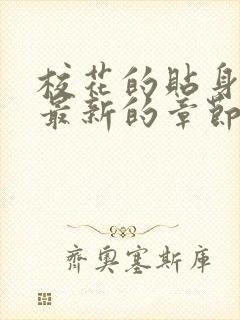 校花的贴身
最新的章節
齊奧塞斯庫